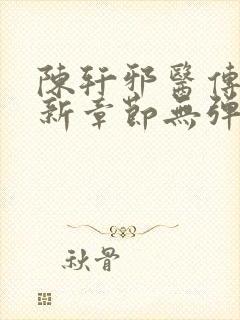 陳軒邪醫傳
新章節無彈
秋骨